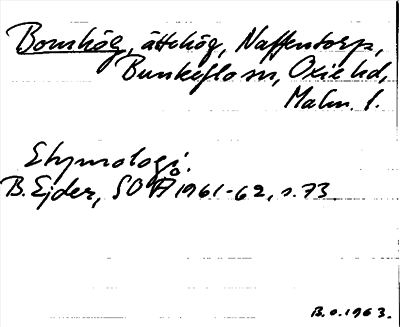 Bomhög, ättehög, Naffentorp,
Bunkeflo sn, Oxie hd,
Malm. l.
Etymologi.
B. Ejder, SOÅ 1961-62, s. 73
B.O. 1963.